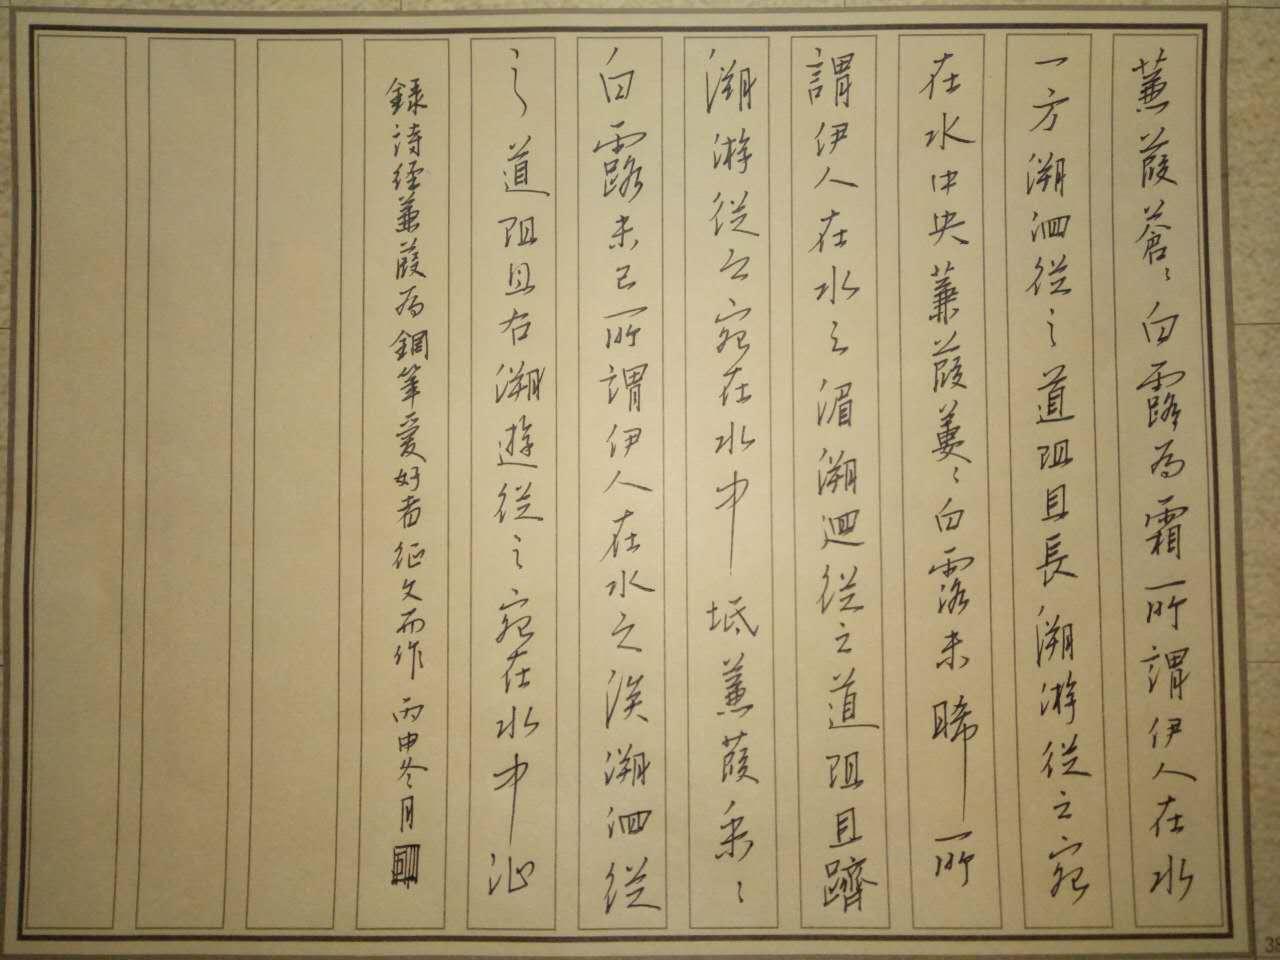 蒹葭蒼〻白露為霜所謂伊人在水
一方溯洄從之道阻且長溯游從之宛
在水中央蒹葭萋〻白露未晞所
謂伊人在水之湄溯迴從之道阻且躋
溯游從之宛在水中坻蒹葭采〻
白露未已所謂伊人在水之涘溯洄從
之道阻且右溯遊從之宛在水中沚
錄詩經蒹葭為鋼筆愛好者征文而作 丙申冬月
38